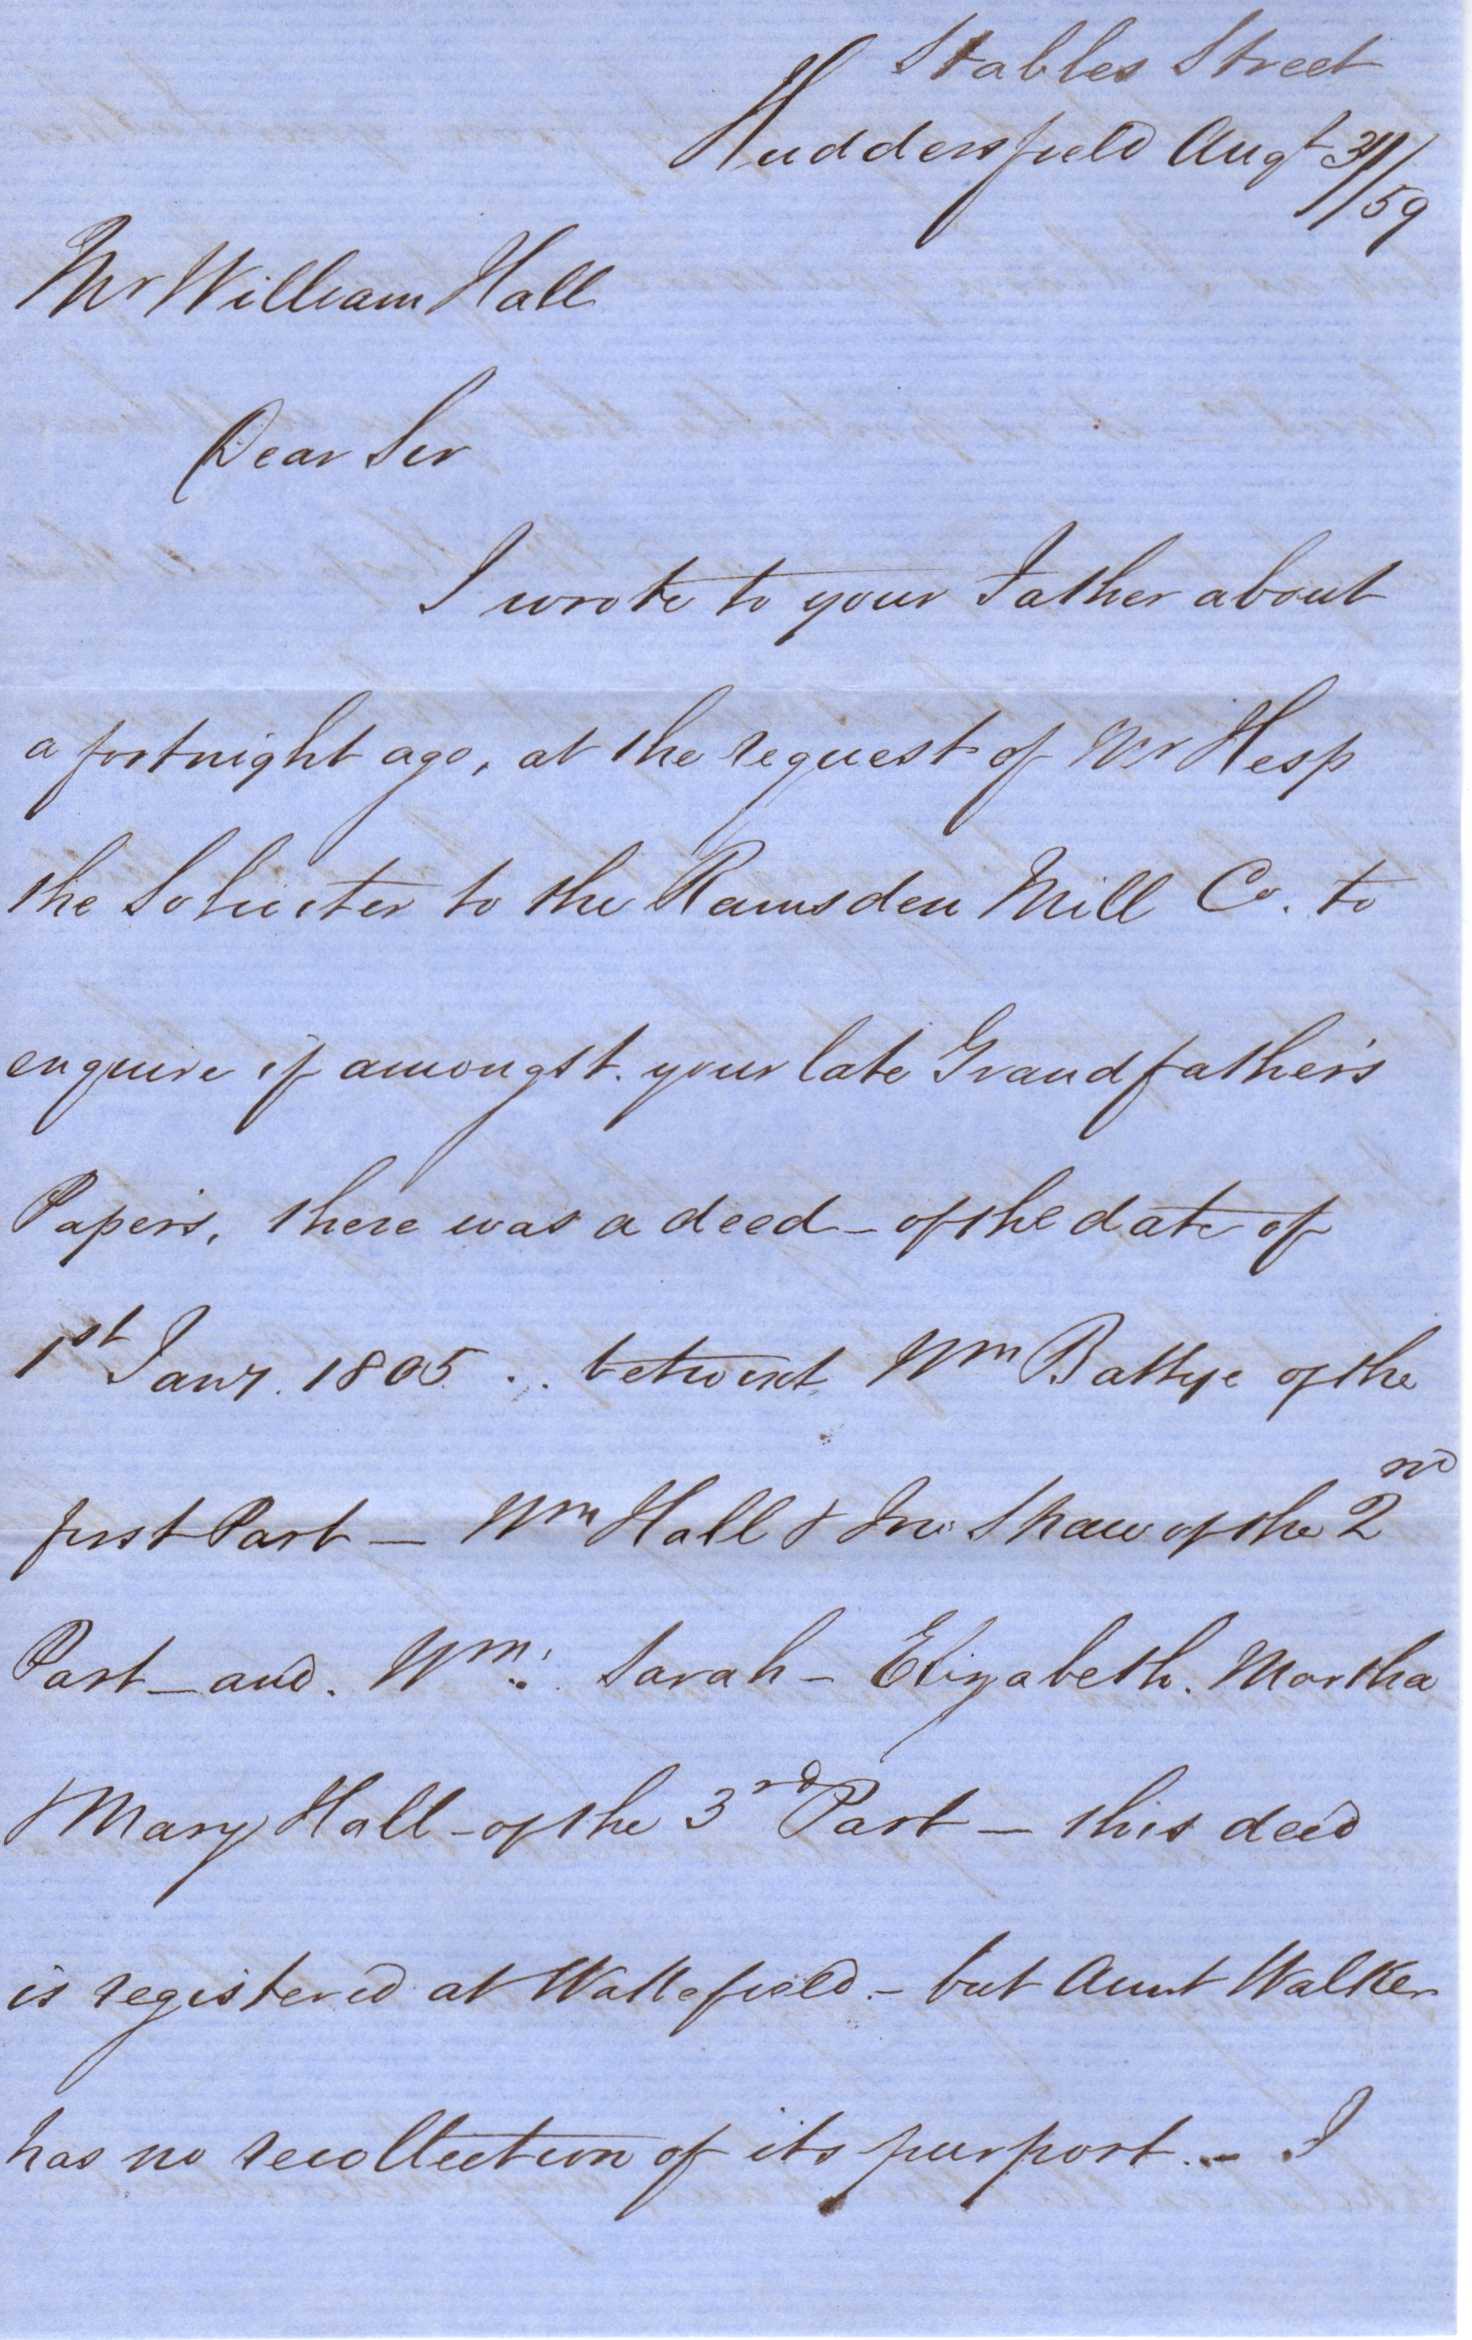 Stables Street
Huddersfield Augt 31/59
Mr William Hall
Dear Sir
I wrote to your Father about
a fortnight ago, at the request of Mr Hesp
the Soliciter to the Ramsden Mill Co. to
enquire if amongst your late Grandfather's
Paper's, there was a deed - of the date of
1st Jany. 1805 .. betwixt Wm Battye of the
first Part - Wm Hall & Jno Shaw of the 2nd
Part - and. Wm: Sarah - Elizabeth. Martha
& Mary Hall - of the 3rd Part - this deed
is registered at Wakefield. - but Aunt Walker
has no recollection of its purport. - I